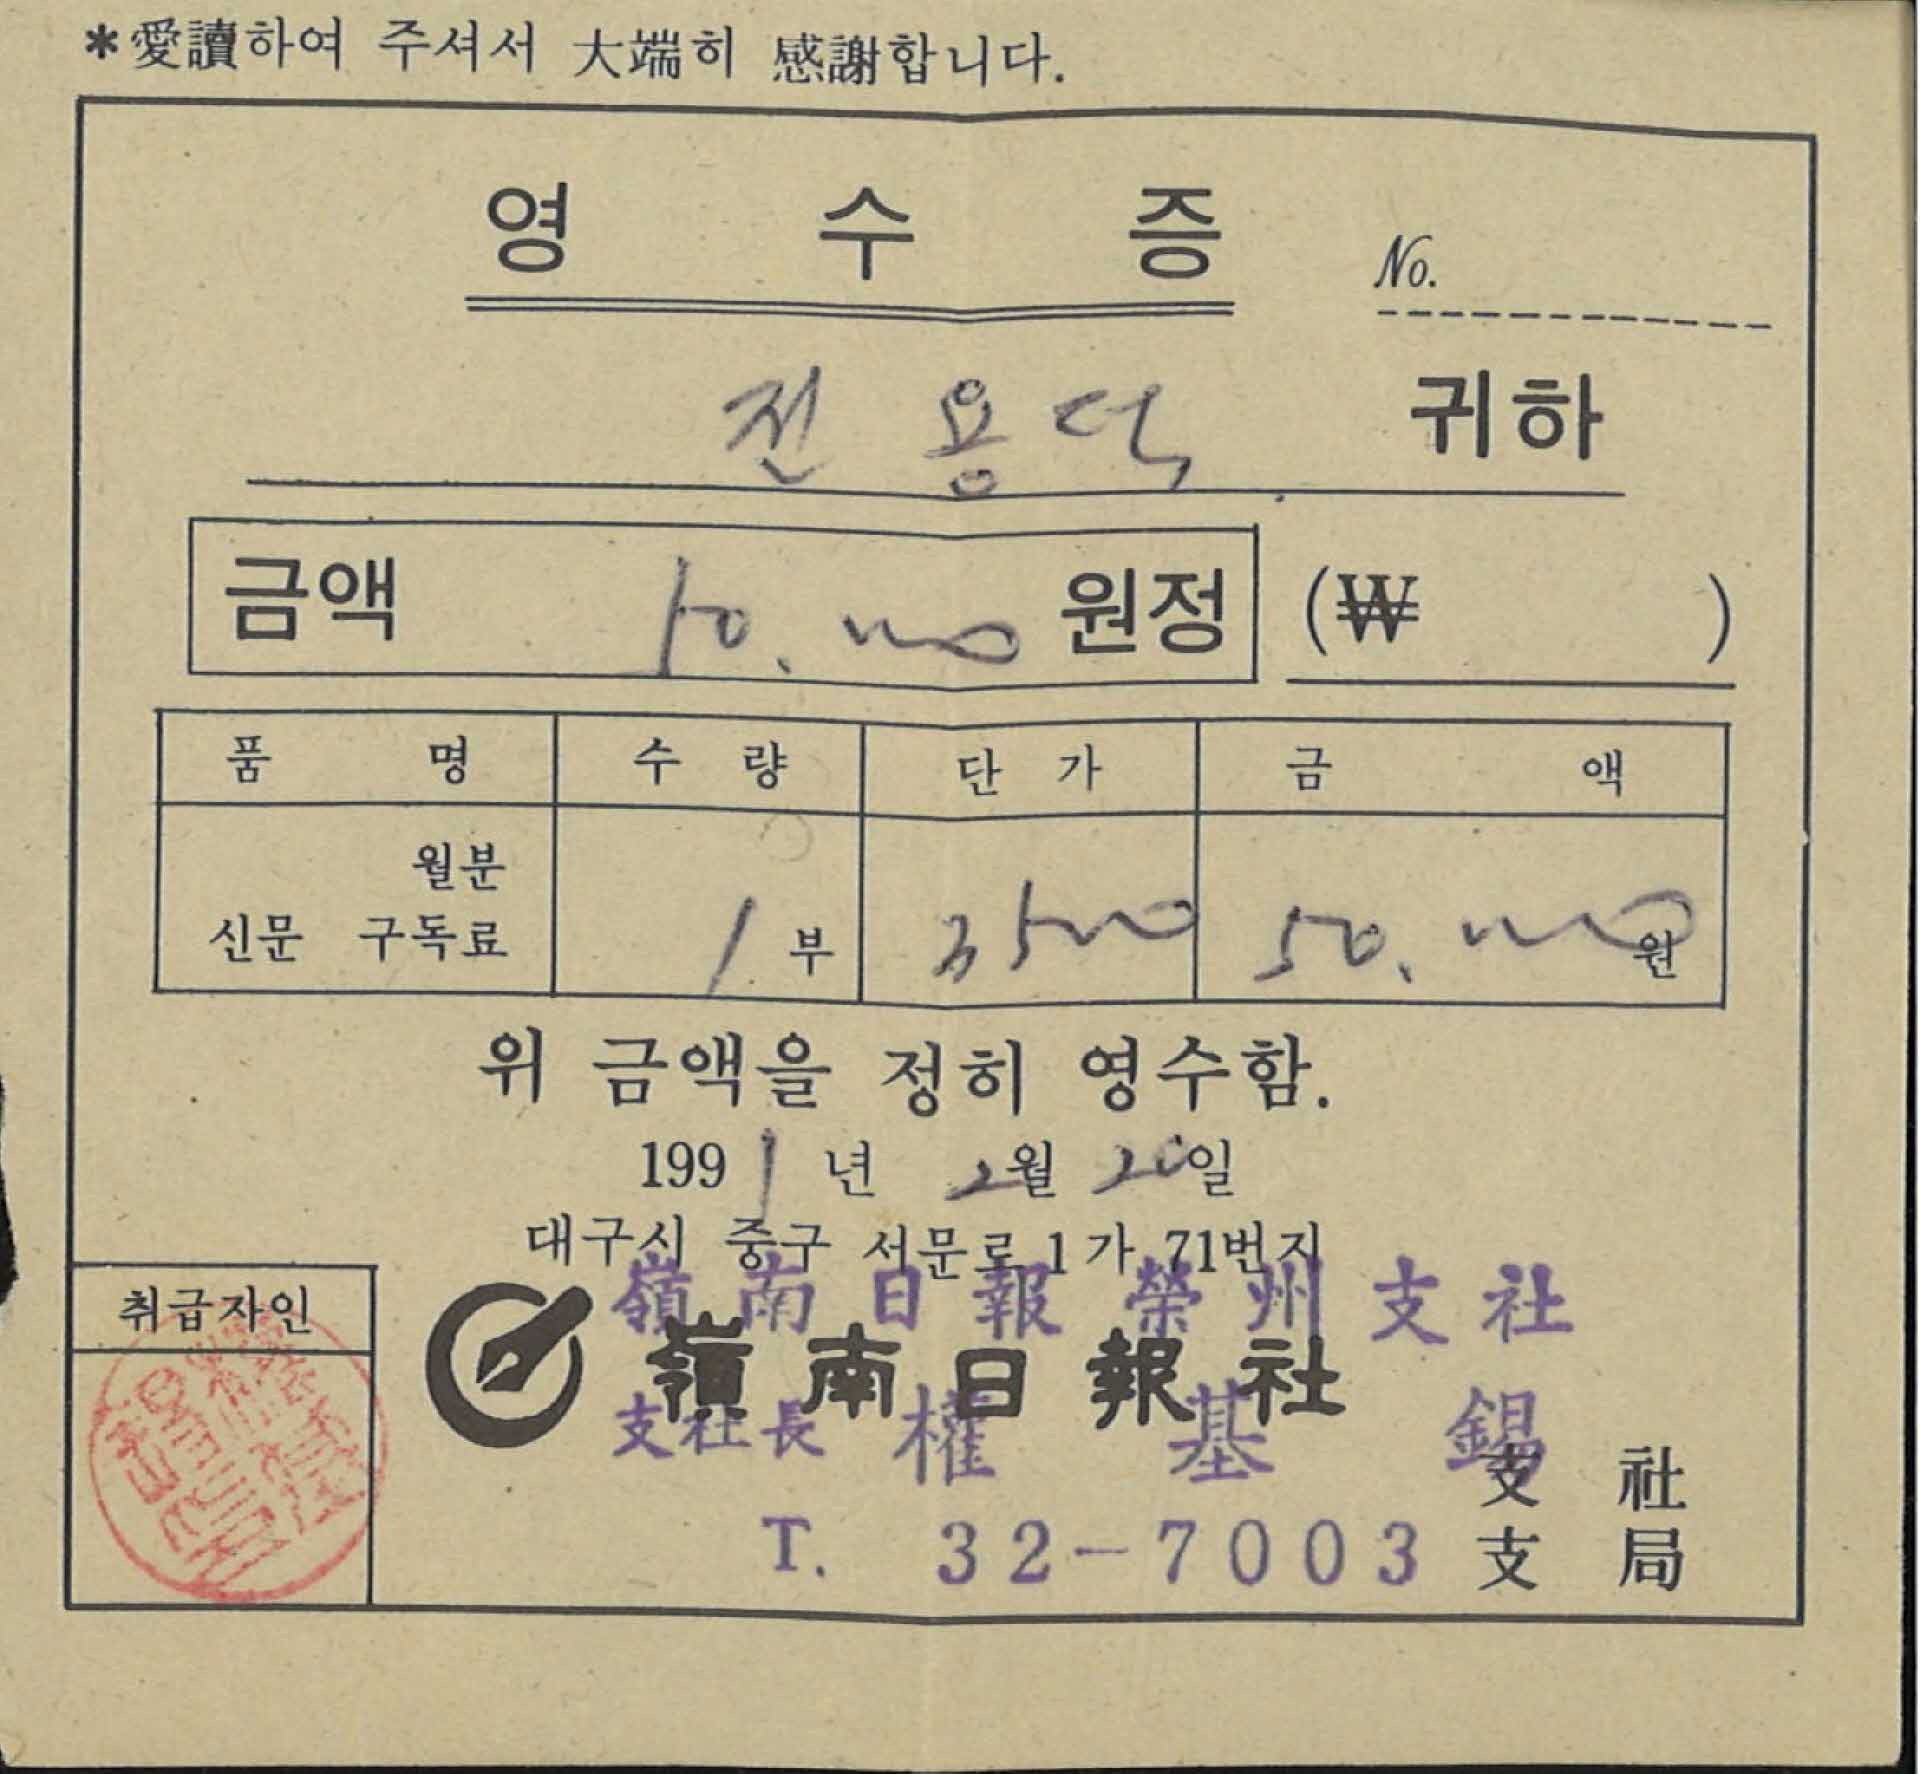 *愛讀하여 주셔서 大端히 感謝합니다.
영 수 증 No.
전 용덕 귀하
금액 50.000 원정 (₩ )
품 명 수 량 단 가 금 액
월분
신문 구독료 1 부 3500 50.000 원
위 금액을 정히 영수함.
1991년 2월 20일
대구시 중구 서문로1가 71번지
취급자인
嶺南日報榮州支社
嶺南日報社
支社長 權基錫
支社
T. 32-7003 支局